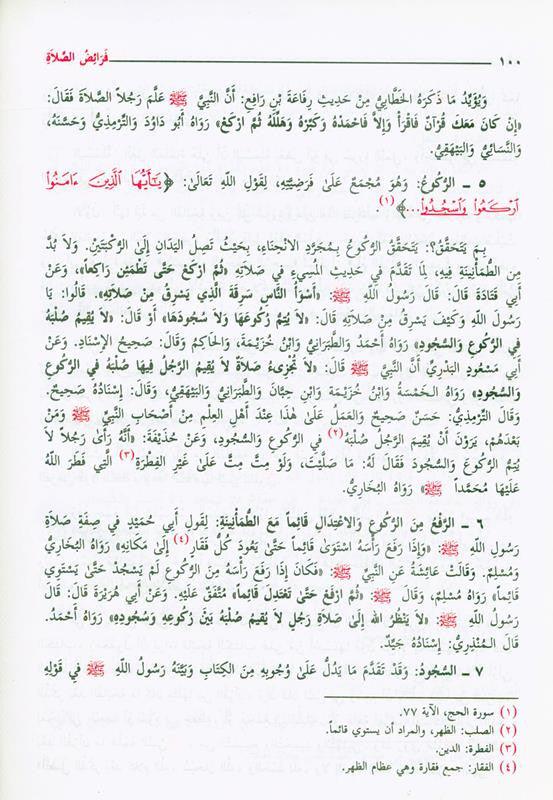 ١٠٠ فَرَائِضُ الصَّلاَةِ
وَيُؤَيِّدُ مَا ذَكَرَهُ الخَطَّابِيُّ مِنْ حَدِيثِ رِفَاعَةَ بْنِ رَافِعٍ: أَنَّ النَّبِيَّ ﷺ عَلَّمَ رَجُلاً الصَّلاَةَ فَقَالَ:
«إِنْ كَانَ مَعَكَ قُرْآنٌ فَاقْرَأْ وَإِلاَّ فَاحْمَدْهُ وَكَبِّرْهُ وَهَلِّلْهُ ثُمَّ ارْكَعْ» رَوَاهُ أَبُو دَاوُدَ وَالتِّرْمِذِيُّ وَحَسَّنَهُ،
وَالنَّسَائِيُّ وَالبَيْهَقِيُّ.
٥ ـ الرُّكُوعُ: وَهُوَ مُجْمَعٌ عَلَىٰ فَرَضِيَّتِهِ، لِقَوْلِ اللَّهِ تَعَالَىٰ: ﴿يَـٰٓأَيُّهَا ٱلَّذِينَ ءَامَنُواْ
ٱرْكَعُواْ وَٱسْجُدُواْ...﴾(١).
بِمَ يَتَحَقَّقُ؟: يَتَحَقَّقُ الرُّكُوعُ بِمُجَرَّدِ الانْحِنَاءِ، بِحَيْثُ تَصِلُ اليَدَانِ إِلَىٰ الرُّكْبَتَيْنِ. وَلاَ بُدَّ
مِن الطُّمَأْنِينَةِ فِيهِ، لِمَا تَقَدَّمَ فِي حَدِيثِ المُسِيءِ فِي صَلاَتِهِ «ثُمَّ ارْكَعْ حَتَّى تَطْمَئِنَّ رَاكِعاً»، وَعَنْ
أَبِي قَتَادَةَ قَالَ: قَالَ رَسُولُ اللَّهِ ﷺ: «أَسْوَأُ النَّاسِ سَرِقَةً الَّذِي يَسْرِقُ مِنْ صَلاَتِهِ». قَالُوا: يَا
رَسُولَ اللَّهِ وَكَيْفَ يَسْرِقُ مِنْ صَلاَتِهِ قَالَ: «لاَ يُتِمُّ رُكُوعَهَا وَلاَ سُجُودَهَا» أَوْ قَالَ: «لاَ يُقِيمُ صُلْبَهُ
فِي الرُّكُوعِ وَالسُّجُودِ» رَوَاهُ أَحْمَدُ وَالطَّبَرَانِيُّ وَابْنُ خُزَيْمَةَ، وَالحَاكِمُ وَقَالَ: صَحِيحُ الإِسْنَادِ. وَعَنْ
أَبِي مَسْعُودٍ البَدْرِيِّ أَنَّ النَّبِيَّ ﷺ قَالَ: «لاَ تُجْزِىءُ صَلاَةٌ لاَ يُقِيمُ الرَّجُلُ فِيهَا صُلْبَهُ فِي الرُّكُوعِ
وَالسُّجُودِ» رَوَاهُ الخَمْسَةُ وَابْنُ خُزَيْمَةَ وَابْنُ حِبَّانَ وَالطَّبَرَانِيُّ وَالبَيْهَقِيُّ، وَقَالَ: إِسْنَادُهُ صَحِيحٌ.
وَقَالَ التِّرْمِذِيُّ: حَسَنٌ صَحِيحٌ وَالعَمَلُ عَلَىٰ هٰذَا عِنْدَ أَهْلِ العِلْمِ مِنْ أَصْحَابِ النَّبِيِّ ﷺ وَمَنْ
بَعْدَهُمْ، يَرَوْنَ أَنْ يُقِيمَ الرَّجُلُ صُلْبَهُ(٢) فِي الرُّكُوعِ وَالسُّجُودِ، وَعَنْ حُذَيْفَةَ: «أَنَّهُ رَأَىٰ رَجُلاً لاَ
يُتِمُّ الرُّكُوعَ وَالسُّجُودَ فَقَالَ لَهُ: مَا صَلَّيْتَ، وَلَوْ مِتَّ مِتَّ عَلَىٰ غَيْرِ الفِطْرَةِ(٣) الَّتِي فَطَرَ اللَّهُ
عَلَيْهَا مُحَمَّداً ﷺ» رَوَاهُ البُخَارِيُّ.
٦ ـ الرَّفْعُ مِنَ الرُّكُوعِ وَالاعْتِدَالِ قَائِماً مَعَ الطُّمَأْنِينَةِ: لِقَوْلِ أَبِي حُمَيْدٍ فِي صِفَةِ صَلاَةِ
رَسُولِ اللَّهِ ﷺ: «وَإِذَا رَفَعَ رَأْسَهُ اسْتَوَىٰ قَائِماً حَتَّىٰ يَعُودَ كُلُّ فَقَارٍ(٤) إِلَىٰ مَكَانِهِ» رَوَاهُ البُخَارِيُّ
وَمُسْلِمٌ. وَقَالَتْ عَائِشَةُ عَنِ النَّبِيِّ ﷺ: «فَكَانَ إِذَا رَفَعَ رَأْسَهُ مِنَ الرُّكُوعِ لَمْ يَسْجُدْ حَتَّىٰ يَسْتَوِيَ
قَائِماً» رَوَاهُ مُسْلِمٌ، وَقَالَ ﷺ: «ثُمَّ ارْفَعْ حَتَّىٰ تَعْتَدِلَ قَائِماً» مُتَّفَقٌ عَلَيْهِ. وَعَنْ أَبِي هُرَيْرَةَ قَالَ: قَالَ
رَسُولُ اللَّهِ ﷺ: «لاَ يَنْظُرُ اللهُ إِلَىٰ صَلاَةِ رَجُلٍ لاَ يُقِيمُ صُلْبَهُ بَيْنَ رُكُوعِهِ وَسُجُودِهِ» رَوَاهُ أَحْمَدُ.
قَالَ المُنْذِرِيُّ: إِسْنَادُهُ جَيِّدٌ.
٧ ـ السُّجُودُ: وَقَدْ تَقَدَّمَ مَا يَدُلُّ عَلَىٰ وُجُوبِهِ مِنَ الكِتَابِ وَبَيَّنَهُ رَسُولُ اللَّهِ ﷺ فِي قَوْلِهِ
(١) سورة الحج، الآية ٧٧.
(٢) الصلب: الظهر، والمراد أن يستوي قائماً.
(٣) الفطرة: الدين.
(٤) الفقار: جمع فقارة وهي عظام الظهر.